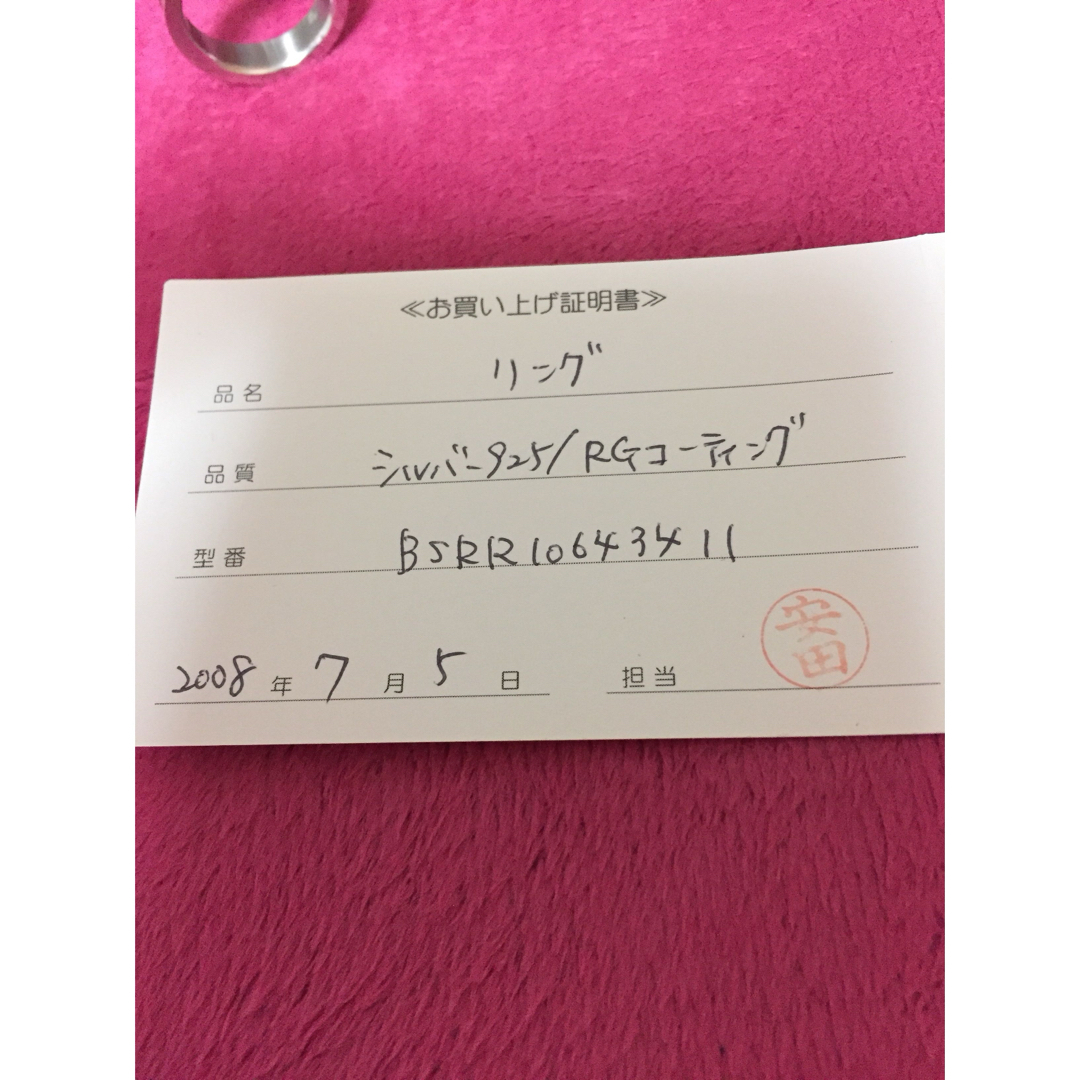 ≪お買い上げ証明書≫
品名 リング
品質 シルバー925/RGコーティング
型番 BSRR10643411
2008年7月5日 担当 安田